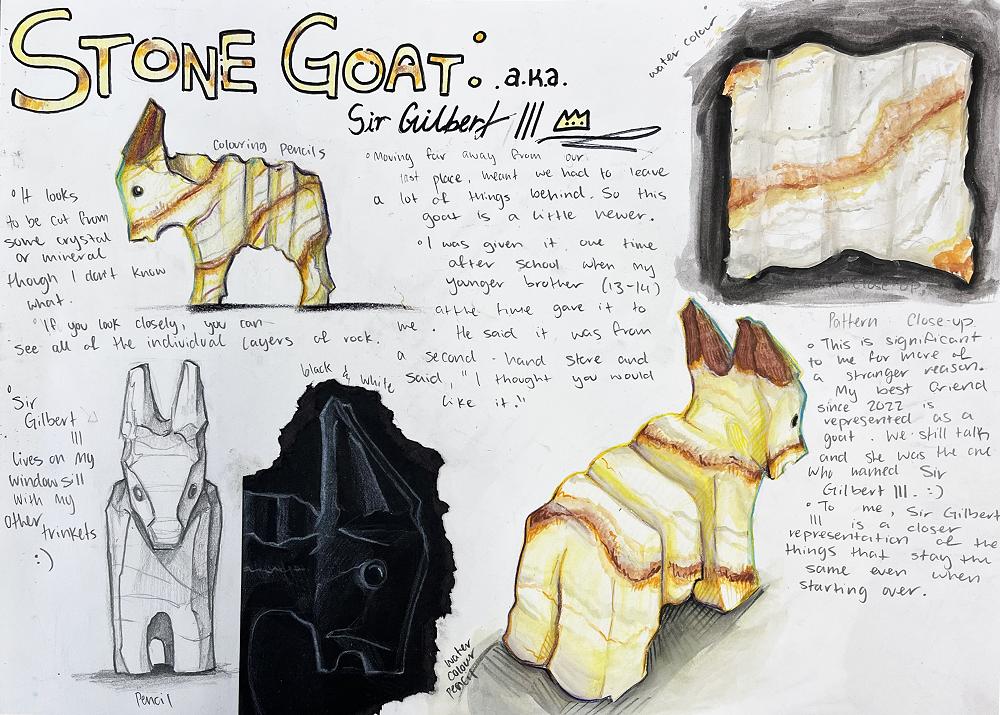 STONE GOAT: .a.k.a.
Sir Gilbert III
water colour
colouring pencils
°It looks
to be cut from
some crystal
or mineral
though I don't know
what.
°If you look closely, you can
see all of the individual layers of rock.
°Moving far away from our
last place, meant we had to leave
a lot of things behind. So this
goat is a little newer.
°I was given it one time
after school when my
younger brother (13-14)
at the time gave it to
me. He said it was from
a second-hand store and
said, "I thought you would
like it."
°Sir
Gilbert
III
lives on my
windowsill
with my
other trinkets
:)
Pencil
black & white
water
colour
pencil
Pattern Close-up
°This is significant
to me for more of
a stranger reason.
My best friend
since 2022 is
represented as a
goat. We still talk
and she was the one
who named Sir
Gilbert III. :)
°To me, Sir Gilbert
III is a closer
representation of the
things that stay the
same even when
starting over.